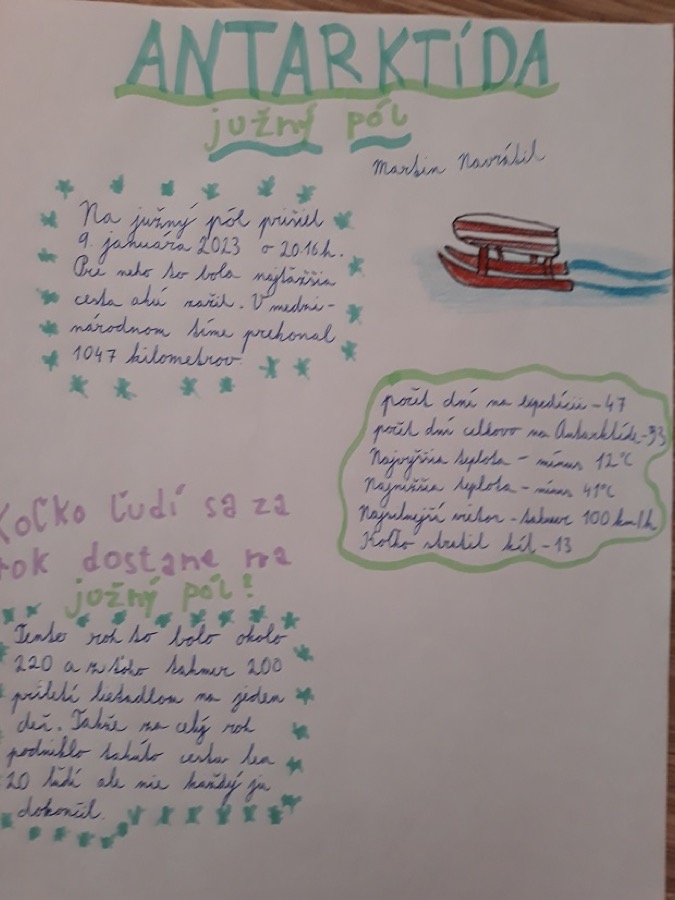 ANTARKTÍDA
južný pól
Martin Navrátil
Na južný pól prišiel
9. januára 2023 o 20.16 h.
Pre neho to bola najťažšia
cesta akú zažil. V medzi-
národnom tíme prekonal
1047 kilometrov.
počet dní na expedícii - 47
počet dní celkovo na Antarktíde - 53
Najvyššia teplota - mínus 12°C
Najnižšia teplota - mínus 41°C
Najsilnejší vietor - takmer 100 km/h
Koľko stratil kíl - 13
Koľko ľudí sa za
rok dostane na
južný pól?
Tento rok to bolo okolo
220 a z toho takmer 200
priletí lietadlom na jeden
deň. Takže za celý rok
podniklo takúto cestu len
20 ľudí ale nie každý ju
dokončil.